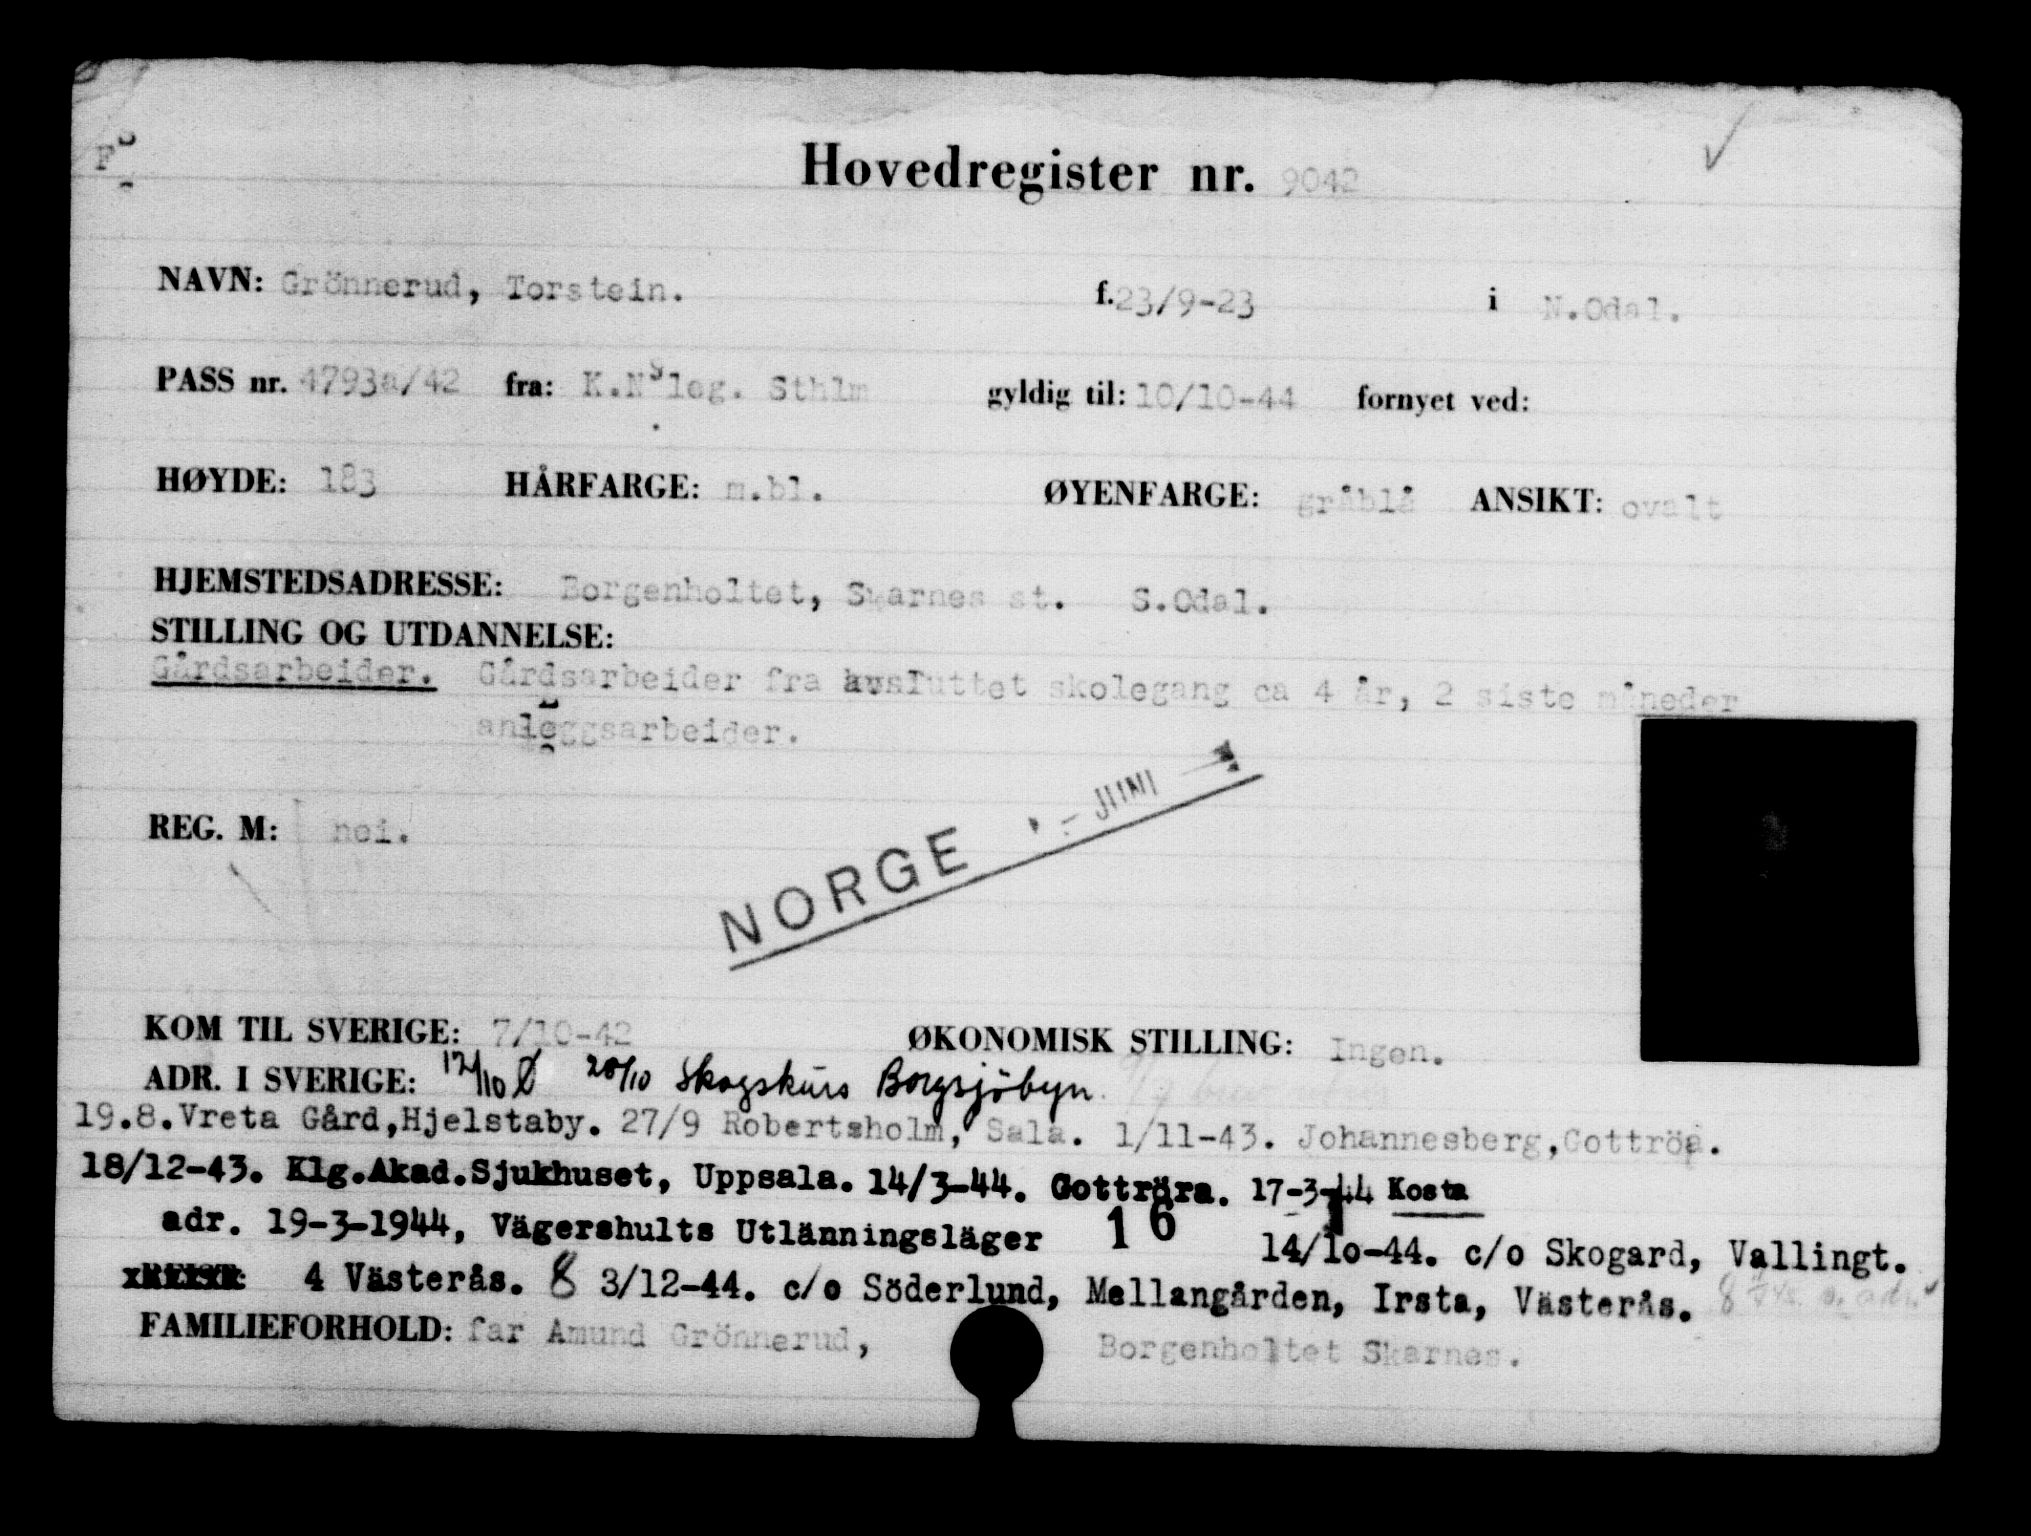 F
Hovedregister nr. 9042
NAVN: Grönnerud, Torstein. f. 23/9-23 i N.Odal.
PASS nr. 4793a/42 fra: K.N leg. Sthlm gyldig til: 10/10-44 fornyet ved:
HØYDE: 183 HÅRFARGE: m.bl. ØYENFARGE: gråblå ANSIKT: ovalt
HJEMSTEDSADRESSE: Borgenholtet, Skarnes st. S.Odal.
STILLING OG UTDANNELSE:
Gårdsarbeider. Gårdsarbeider fra avsluttet skolegang ca 4 år, 2 siste måneder
anleggsarbeider.
REG. M: nei.
NORGE JUNI
KOM TIL SVERIGE: 7/10-42 ØKONOMISK STILLING: Ingen.
ADR. I SVERIGE: 12/10 Ø 28/10 Skogskurs Borgsjöbyn.
19.8.Vreta Gård,Hjelstaby. 27/9 Robertsholm, Sala. 1/11-43. Johannesberg,Gottröa.
18/12-43. Klg.Akad.Sjukhuset, Uppsala. 14/3-44. Gottröra. 17-3-44 Kosta
adr. 19-3-1944, Vägershults Utlänningsläger 16 14/10-44. c/o Skogard, Vallingt.
4 Västerås. 8 3/12-44. c/o Söderlund, Mellangården, Irsta, Västerås.
FAMILIEFORHOLD: far Amund Grönnerud, Borgenholtet Skarnes.